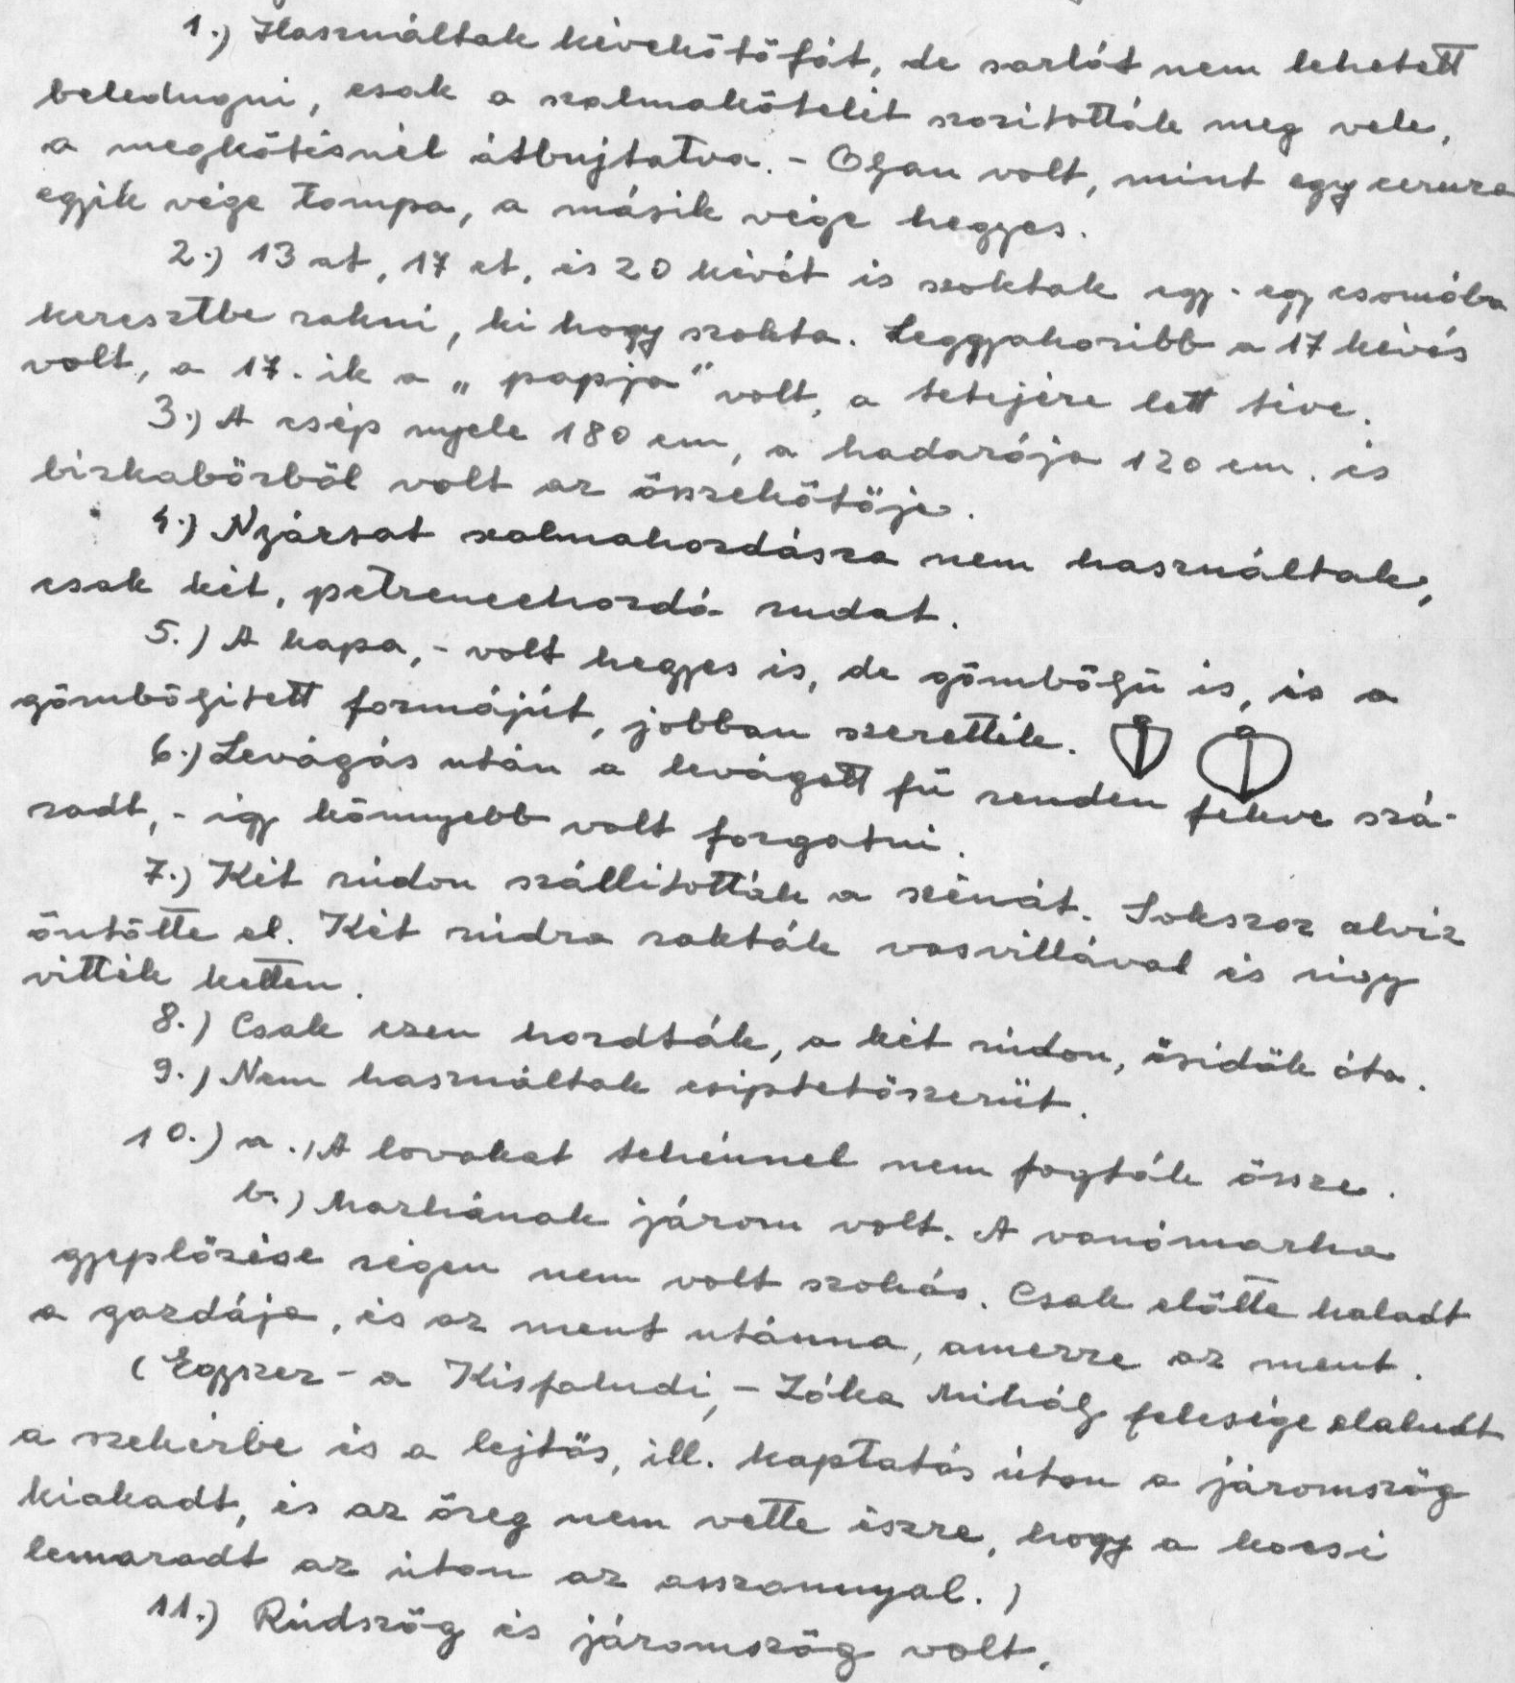 1.) Használtak kévekötőfát, de sarlót nem lehetett
beledugni, csak a szalmakötelét szorították meg vele,
a megkötésnél átbujtatva. - Olyan volt, mint egy ceruza
egyik vége tompa, a másik vége hegyes.
2.) 13 at, 17 et, és 20 kévét is szoktak egy - egy csomóba
keresztbe rakni, ki hogy szokta. Leggyakoribb a 17 kévés
volt, a 17. ik a „papja" volt, a tetejére lett téve.
3.) A csép nyele 180 cm, a hadarója 120 cm. és
birkabőrből volt az összekötője.
4.) Nyársat szalmahordásra nem használtak,
csak két, petrencehordó rudat.
5.) A kapa, - volt hegyes is, de gömbölyű is, és a
gömbölyített formájút, jobban szerették.
6.) Levágás után a levágott fű renden fekve szá-
radt, - így könnyebb volt forgatni.
7.) Két rúdon szállították a szénát. Sokszor alvíz
öntötte el. Két rúdra rakták vasvillával és úgy
vitték ketten.
8.) Csak ezen hordták, a két rúdon, ősidők óta.
9.) Nem használtak csiptetőszerűt.
10.) a.) A lovakat tehénnel nem fogták össze.
b.) Marhának járom volt. A vonómarha
gyeplőzése régen nem volt szokás. Csak előtte haladt
a gazdája, és az ment utánna, amerre az ment.
(Egyszer - a Kisfaludi, - Zóka Mihály felesége elaludt
a szekérbe és a lejtős, ill. kaptatós úton a járomszög
kiakadt, és az öreg nem vette észre, hogy a kocsi
lemaradt az úton az asszonnyal.)
11.) Rúdszög és járomszög volt.